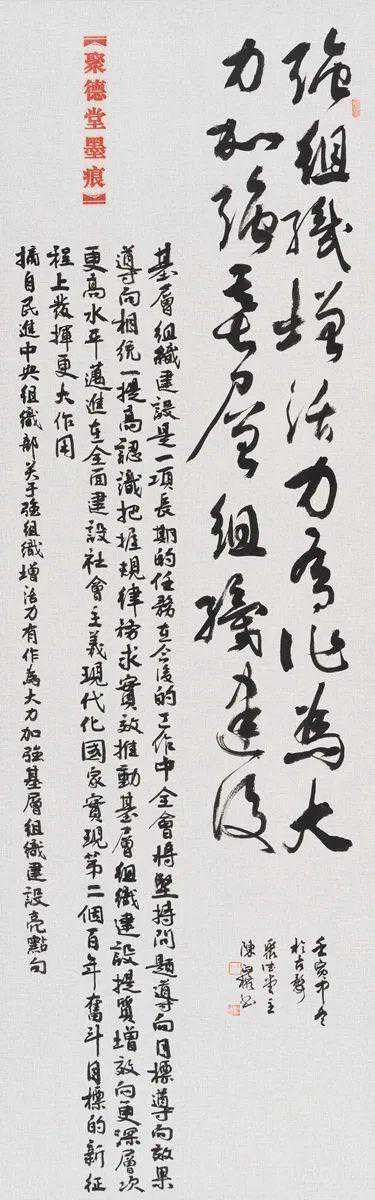 強組織增活力有作為大
力加強基層組織建設
壬寅中冬
於古
聚德堂主
陳
基層組織建設是一項長期的任務在今後的工作中全會將堅持問題導向目標導向效果
導向相統一提高認識把握規律務求實效推動基層組織建設提質增效向更深層次
更高水平邁進在全面建設社會主義現代化國家實現第二個百年奮斗目標的新征
程上發揮更大作用
摘自民進中央組織部关于強組織增活力有作為大力加強基層組織建設亮點句
【聚德堂墨痕】